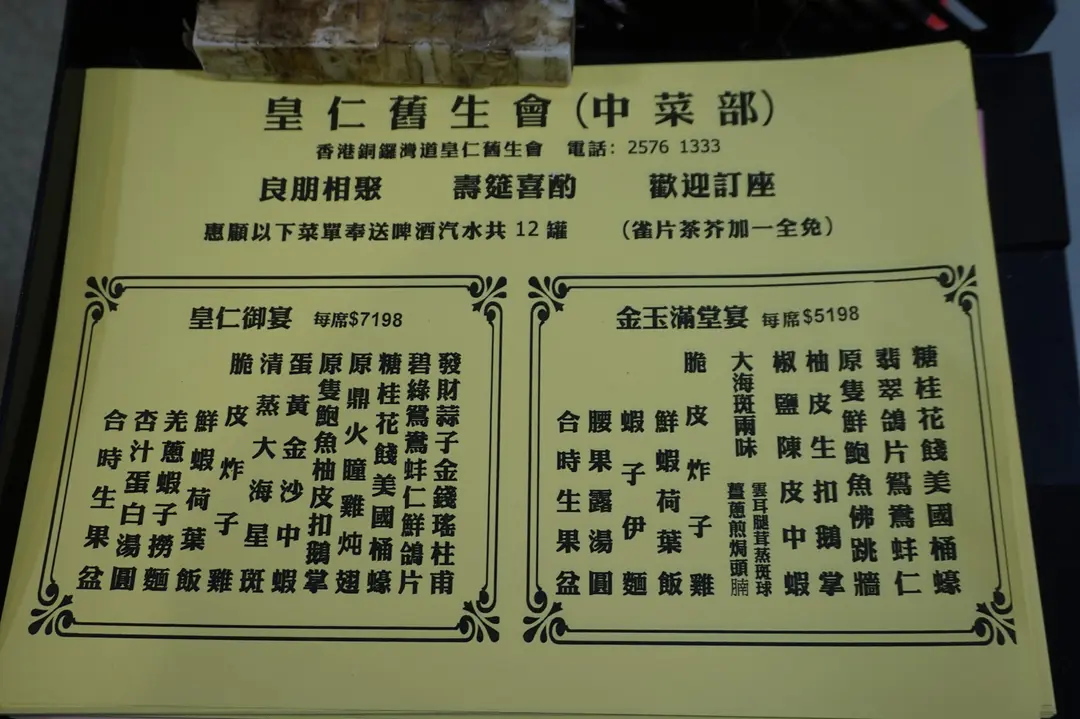 皇仁舊生會(中菜部)
香港銅鑼灣道皇仁舊生會 電話: 2576 1333
良朋相聚 壽筵喜酌 歡迎訂座
惠顧以下菜單奉送啤酒汽水共 12 罐 (雀片茶芥加一全免)
皇仁御宴 每席$7198
發財蒜子金錢瑤柱甫
碧綠鴛鴦蚌仁鮮鴿片
糖桂花餞美國桶蠔
原鼎火瞳雞炖翅
原隻鮑魚柚皮扣鵝掌
蛋黃金沙中蝦
清蒸大海星斑
脆皮炸子雞
鮮蝦荷葉飯
羌蔥蝦子撈麵
杏汁蛋白湯圓
合時生果盆
金玉滿堂宴 每席$5198
糖桂花餞美國桶蠔
翡翠鴿片鴛鴦蚌仁
原隻鮮鮑魚佛跳牆
柚皮生扣鵝掌
椒鹽陳皮中蝦
大海斑兩味
雲耳腿茸蒸斑球
薑蔥煎焗頭腩
脆皮炸子雞
鮮蝦荷葉飯
蝦子伊麵
腰果露湯圓
合時生果盆